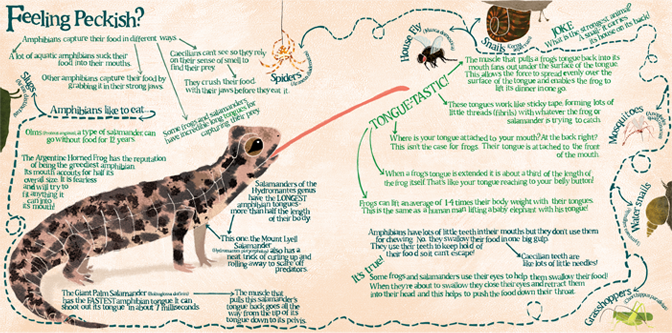 Feeling Peckish?
Amphibians capture their food in different ways
A lot of aquatic amphibians suck their
food into their mouths.
Other amphibians capture their food by
grabbing it in their strong jaws.
Caecilians can't see so they rely
on their sense of smell to
find their prey
They crush their food
with their jaws before they eat it.
Some frogs and salamanders
have incredible long tongues for
capturing their prey.
Slugs
Amphibians like to eat
Spiders
House Fly
(Musca domestica)
Snails
JOKE
What is the strongest animal?
A snail: it carries
its house on its back!
Mosquitoes
Water snails
Grasshoppers
Olms
a type of salamander can
go without food for 12 years
The Argentine Horned Frog has the reputation
of being the greediest amphibian
Its mouth accounts for half its
overall size. It is fearless
and will try to
fit anything it
can into
its mouth!
Salamanders of the
Hydromantes genus
have the LONGEST
amphibian tongues-
more than half the length
of their body
This one, the Mount Lyell
Salamander
(Hydromantes platycephalus) also has a
neat trick of curling up and
rolling away to scare off
predators
The Giant Palm Salamander (Bolitoglossa dofleini)
has the FASTEST amphibian tongue. It can
shoot out its tongue in about 7 milliseconds.
The muscle that
pulls this salamander's
tongue back goes all the
way from the up of its
tongue down to its pelvis.
TONGUE-TASTIC!
The muscle that pulls a frog's tongue back into its
mouth fans out under the surface of the tongue.
This allows the force to spread evenly over the
surface of the tongue and enables the frog to
lift its dinner in one go.
These tongues work like sticky tape, forming lots of
little threads (fibrils) with whatever the frog or
salamander is trying to catch.
Where is your tongue attached to your mouth? At the back right?
This isn't the case for frogs. Their tongue is attached to the front
of the mouth.
When a frog's tongue is extended it is about a third of the length of
the frog itself. That's like your tongue reaching to your belly button!
Frogs can lift an average of 1.4 times their body weight with their tongues.
This is the same as a human man lifting a baby elephant with his tongue!
Amphibians have lots of little teeth in their mouths but they don't use them
for chewing. No, they swallow their food in one big gulp.
They use their teeth to keep hold of
their food so it can't escape!
Caecilian teeth are
like lots of little needles!
It's true!
Some frogs and salamanders use their eyes to help them swallow their food!
When they're about to swallow they close their eyes and retract them
into their head and this helps to push the food down their throat.